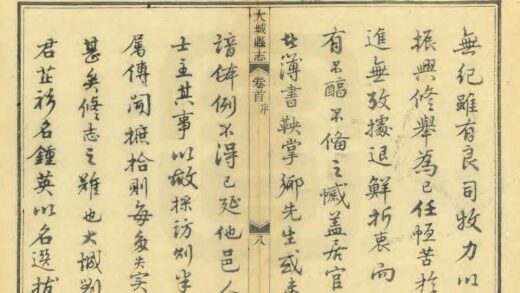 無紀雖有良司牧力以
振興修舉為己任恒苦於
進無攷據退鮮折衷而
有不醕不備之憾蓋居官
者簿書鞅掌鄉先生或未
大城縣志 卷首 序 八
諳体例不得已延他邑人
士主其事以故採訪則半
屬傳聞摭拾則每多失實
甚矣修志之難也大城劉
君芷衫名鍾英以名選拔